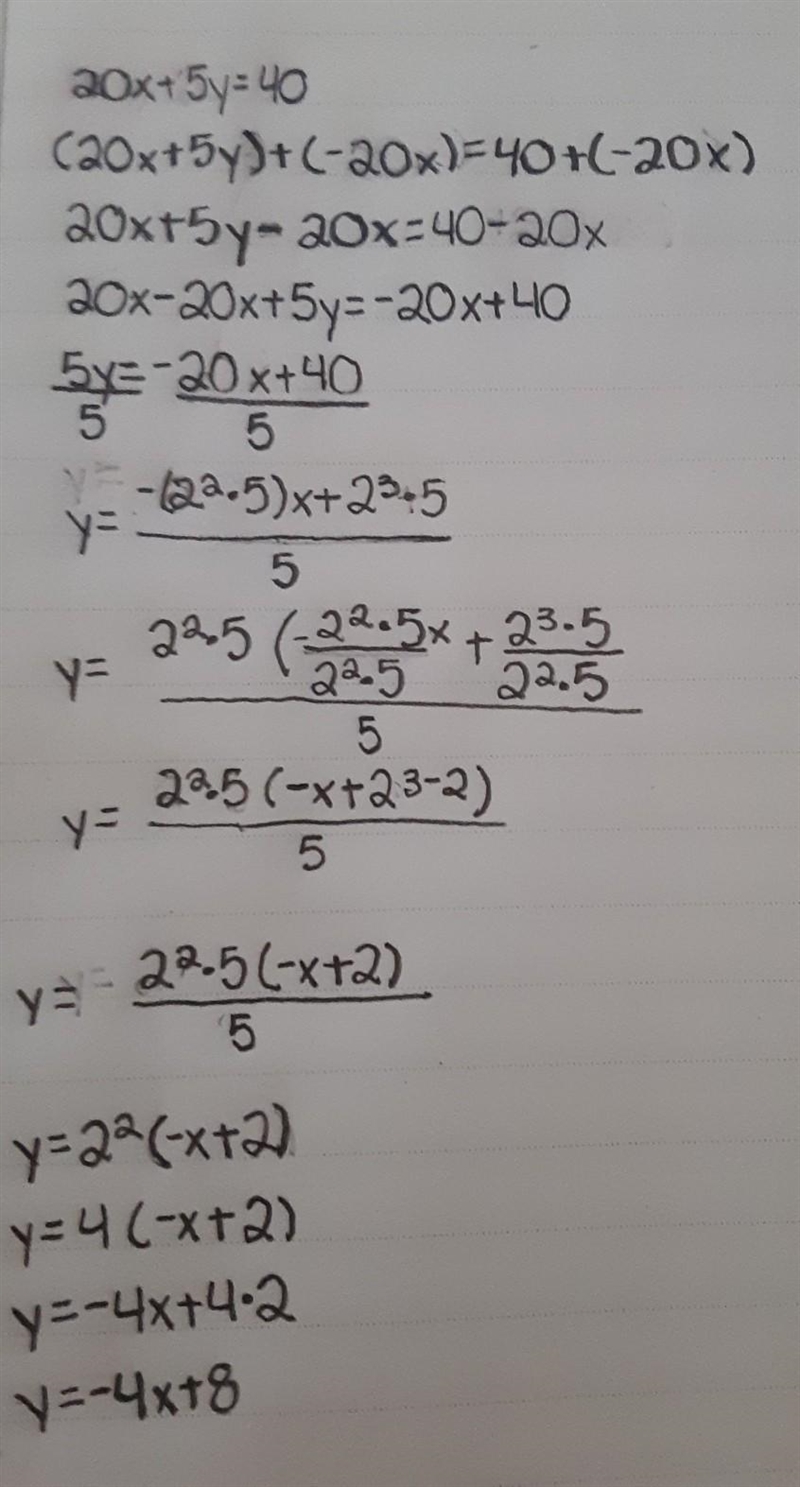 20x+5y=40
(20x+5y)+(-20x)=40+(-20x)
20x+5y-20x=40-20x
20x-20x+5y=-20x+40
5y/5=-20x+40/5
y=-(2²·5)x+2³·5/5
y=2²·5(-2²·5x/2²·5+2³·5/2²·5)/5
y=2²·5(-x+2³⁻²)/5
y=2²·5(-x+2)/5
y=2²(-x+2)
y=4(-x+2)
y=-4x+4·2
y=-4x+8